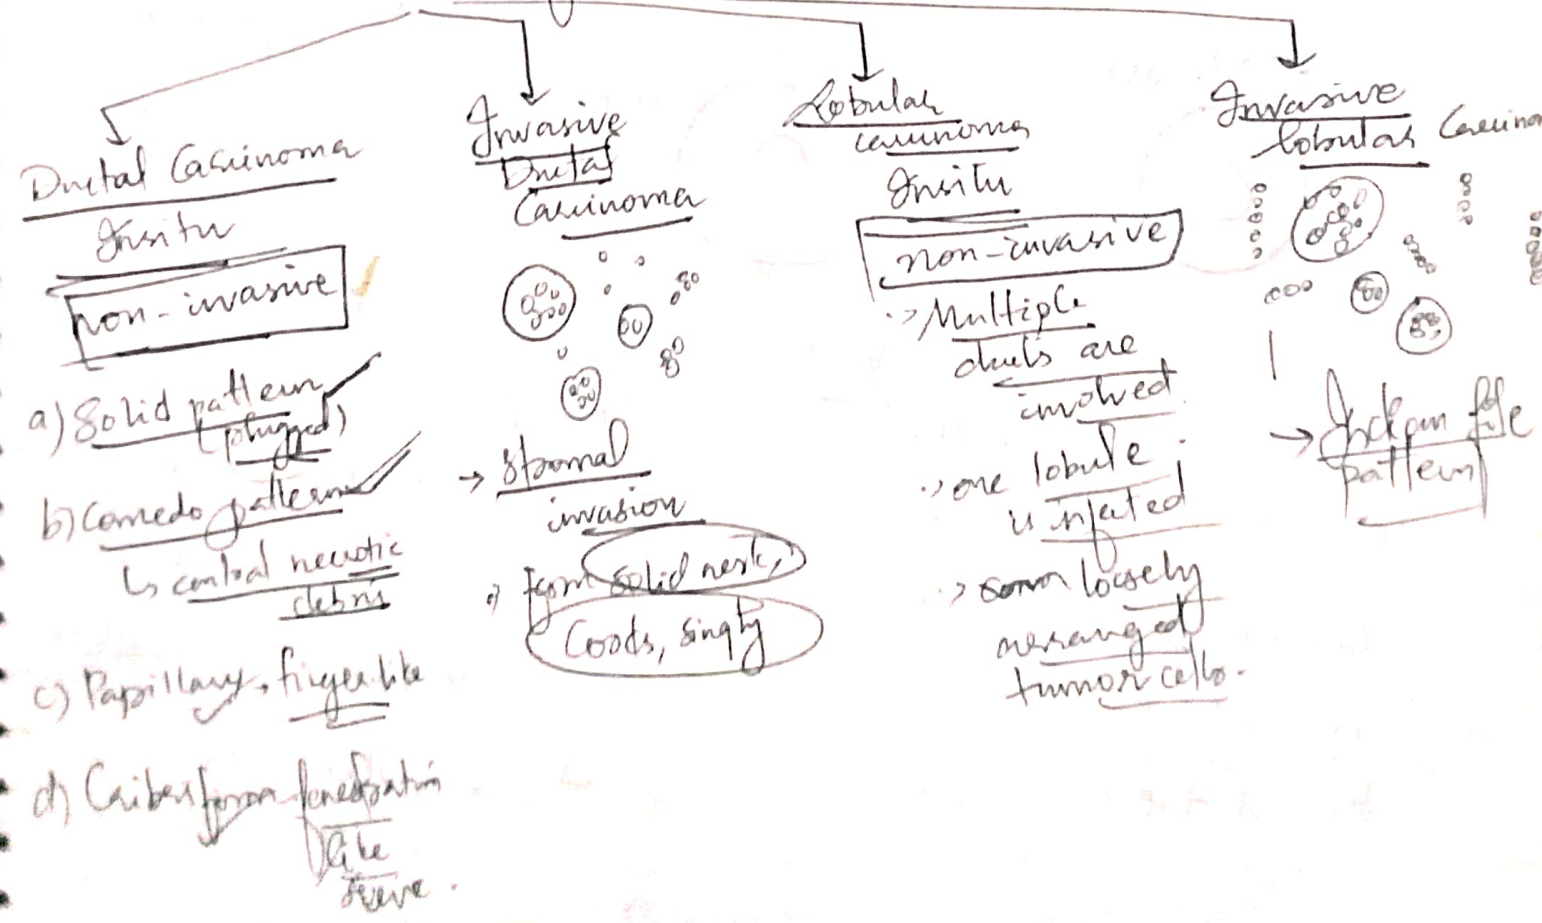 Ductal Carcinoma
Insitu
non-invasive
a) Solid pattern
(plugged)
b) Comedo pattern
↳ central necrotic
debris
c) Papillary, finger like
d) Criberiform fenestration
like
sieve.
Invasive
Ductal
Carcinoma
→ Stromal
invasion
Form solid nests,
Cords, singly
Lobular
carcinoma
Insitu
non-invasive
Multiple
ducts are
involved.
one lobule
is infected
loosely
tumor cells.
Invasive
lobular
→ Indian file
pattern